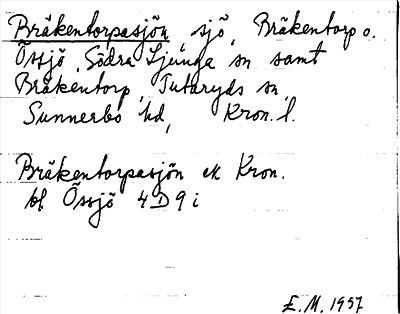 Bräkentorpasjön sjö, Bräkentorp o.
Össjö, Södra Ljunga sn samt
Bräkentorp, Tutaryds sn,
Sunnerbo hd, Kron. l.
Bräkentorpasjön ek Kron.
bl Össjö 4D9i
E.M. 1957